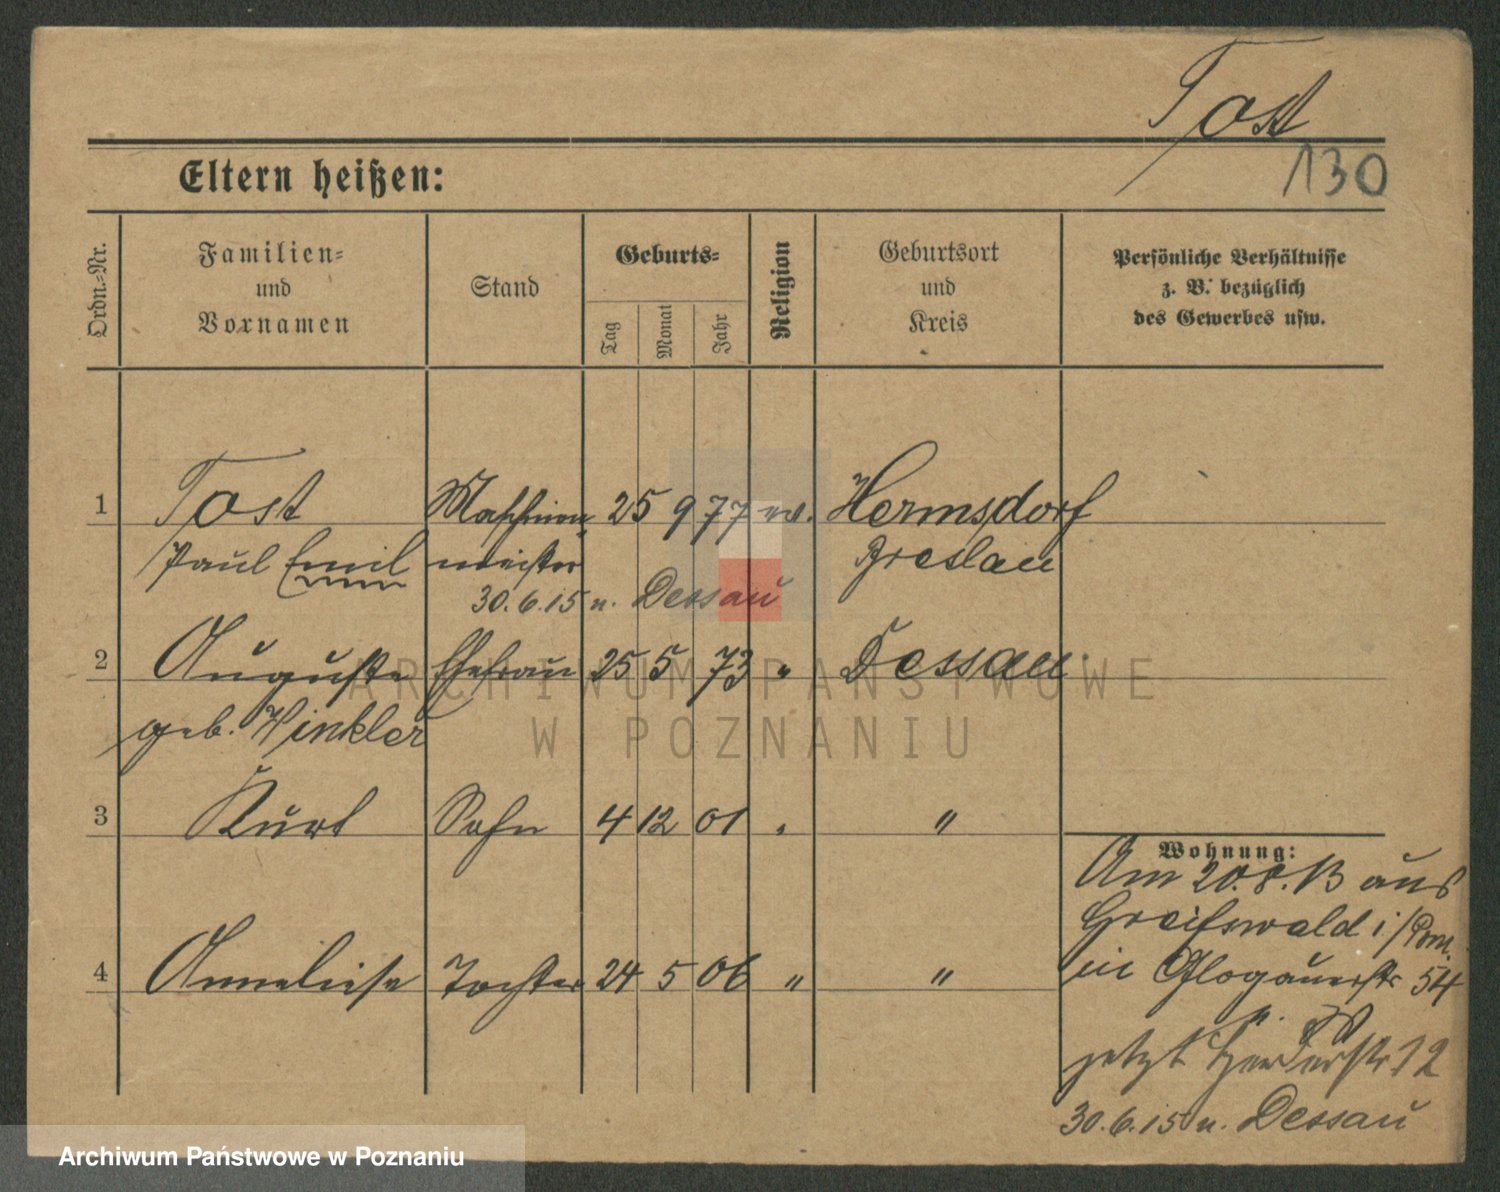 Tost
130
Eltern heißen:
Ordn.-Nr.
Familien-
und
Vornamen
Stand
Geburts-
Tag
Monat
Jahr
Religion
Geburtsort
und
Kreis
Persönliche Verhältnisse
z. B. bezüglich
des Gewerbes usw.
1 Tost Maschinen 25 9 77 ev. Hermsdorf
Paul Emil meister Breslau
30.6.15 n. Dessau
2 Auguste Ehefrau 25 5 73 " Dessau
geb. Winkler
3 Kurt Sohn 4 12 01 " "
Wohnung:
Am 20.8.13 aus
Greifswald i/Pom.
in Glogauerstr 54
4 Anneliese Tochter 24 5 06 " "
jetzt 12
30.6.15 n. Dessau
ARCHIWUM PAŃSTWOWE
W POZNANIU
Archiwum Państwowe w Poznaniu